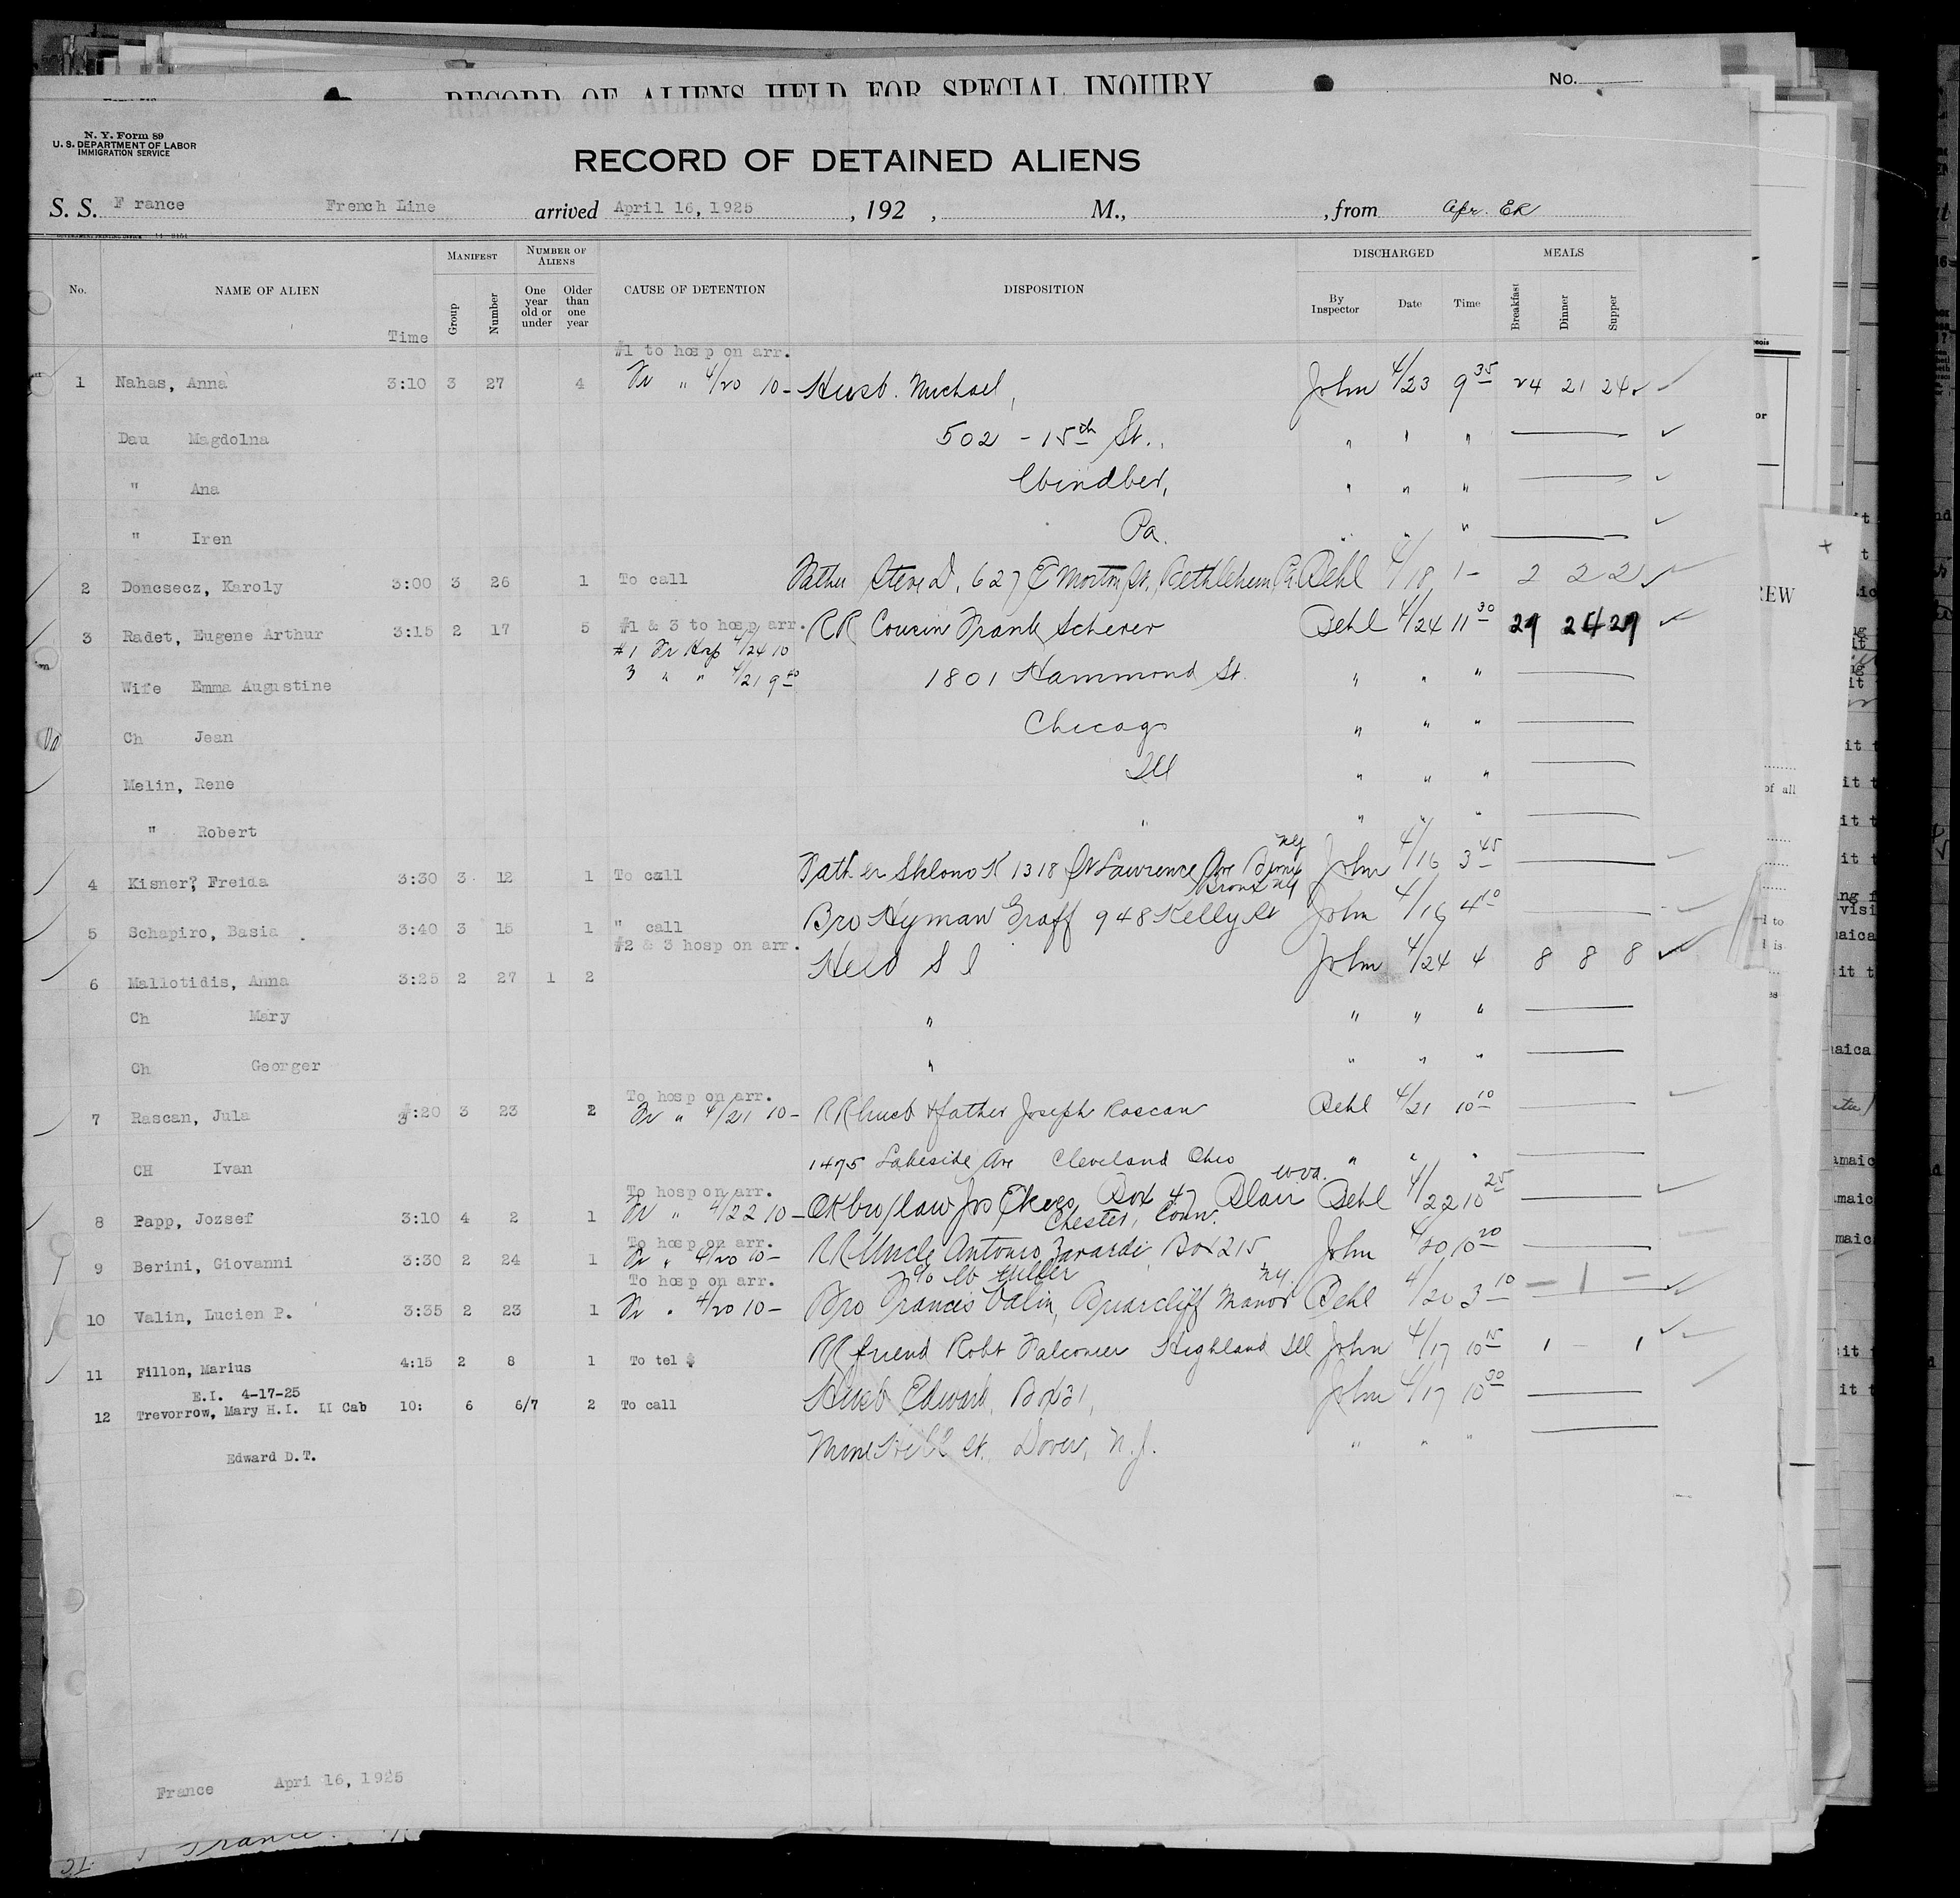 RECORD OF ALIENS HELD FOR SPECIAL INQUIRY No.
N. Y. Form 89
U. S. DEPARTMENT OF LABOR
IMMIGRATION SERVICE
RECORD OF DETAINED ALIENS
S. S. France French Line arrived April 16, 1925, 192 , M., , from
No. NAME OF ALIEN Time MANIFEST Group Number NUMBER OF ALIENS One year old or under Older than one year CAUSE OF DETENTION DISPOSITION DISCHARGED By Inspector Date Time MEALS Breakfast Dinner Supper
#1 to hosp on arr.
1 Nahas, Anna 3:10 3 27 4 Fr " 4/20 10- Husb. Michael, John 4/23 9 35 24 21 24
Dau Magdolna 502 - 15th St., " " "
" Ana Windber, " " "
" Iren Pa. " " "
2 Doncsecz, Karoly 3:00 3 26 1 To call Father Steve D. 627 E Morton St., Bethlehem Pa Behl 4/18 1- 2 2 2
3 Radet, Eugene Arthur 3:15 2 17 5 #1 & 3 to hosp arr. RR Cousin Frank Scherer Behl 4/24 11 30
#1 Fr Hosp 4/24 10
3 " " 4/21 9 40
Wife Emma Augustine 1801 Hammond St. " " "
Ch Jean Chicago " " "
Melin, Rene Ill " " "
" Robert " " " "
4 Kisner?, Freida 3:30 3 12 1 To call Father Shlomo K 1318 St Lawrence Ave Bronx NY John 4/16 3 45
Bronx NY
5 Schapiro, Basia 3:40 3 15 1 " call Bro Hyman Graff 948 Kelly St John 4/16 4 10
#2 & 3 hosp on arr.
6 Mallotidis, Anna 3:25 2 27 1 2 Held S I John 4/24 4 8 8 8
Ch Mary " " " "
Ch Georger " " " "
To hosp on arr.
7 Rascan, Jula 3:20 3 23 2 Fr " 4/21 10- RR husb & father Joseph Rascan Behl 4/21 10 10
CH Ivan 1475 Lakeside Ave Cleveland Ohio " " "
To hosp on arr.
8 Papp, Jozsef 3:10 4 2 1 Fr " 4/22 10- OK bro/law Jos Box 47 Blair W.Va. Behl 4/22 10 25
To hosp on arr. Chester, Conn.
9 Berini, Giovanni 3:30 2 24 1 Fr " 4/20 10- RR Uncle Antonio Zavardi, Box 215 John 4/20 10 20
To hosp on arr. c/o W Miller
10 Valin, Lucien P. 3:35 2 23 1 Fr " 4/20 10- Bro Francis Valin, Briarcliff Manor N.Y. Behl 4/20 3 10 - 1 -
11 Fillon, Marius 4:15 2 8 1 To tel $ RR friend Robt Falconier Highland Ill John 4/17 10 15 1 - 1
E.I. 4-17-25
12 Trevorrow, Mary H.I. II Cab 10: 6 6/7 2 To call Husb Edward, Box 31, John 4/17 10 30
Edward D.T. Mine Hill St. Dover, N.J. " " "
France Apri 16, 1925